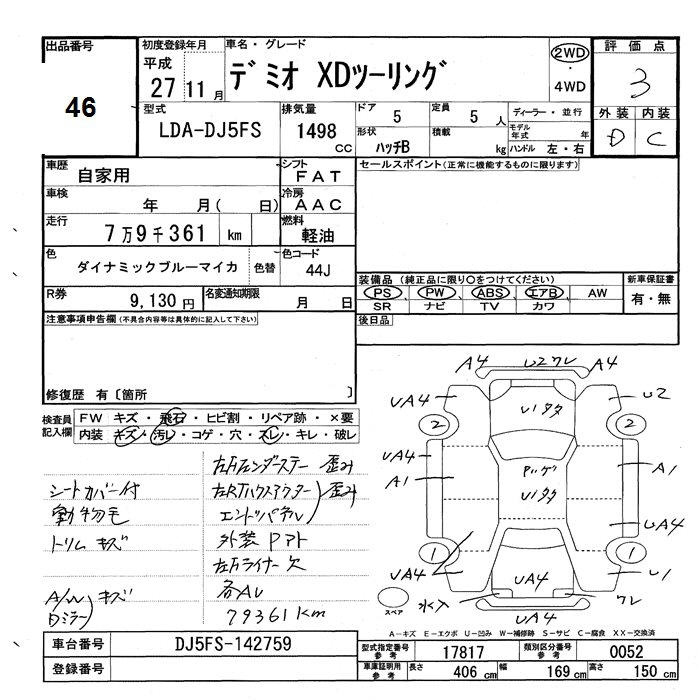 出品番号
46
初度登録年月
平成
27 11月
車名・グレード
デミオ XDツーリング
2WD
・
4WD
評価点
3
外装 内装
D C
型式
LDA-DJ5FS
排気量
1498
CC
ドア
5
定員
5 人
ディーラー・並行
モデル年式 年
形状
ハッチB
積載
kg
ハンドル 左・右
車歴
自家用
シフト
FAT
車検
年 月( 日)
冷房
AAC
走行
7万9千361 km
燃料
軽油
色
ダイナミックブルーマイカ
色替
色コード
44J
R券
9,130円
名変通知期限
月 日
セールスポイント(正常に機能するものに限ります)
装備品(純正品に限り○をつけてください)
PS PW ABS エアB AW
SR ナビ TV カワ
新車保証書
有・無
後日品
注意事項申告欄(不具合内容等は具体的に記入して下さい)
修復歴 有〔箇所 〕
検査員
記入欄
FW キズ・飛石・ヒビ割・リペア跡・×要
内装 キズ・汚レ・コゲ・穴・スレ・キレ・破レ
シートカバー付
動物毛
トリムキズ
A/W キズ
Dミラー
左Fフェンダーステー 歪み
左RTハウスアウター 歪み
エンドパネル
外装 Pアト
左Fライナー 欠
各AU
79361km
A4 U2ワレ A4
UA4 U2
2 Uリタタ 2
UA4
A1 Pルーゲ A1
Uリタタ
UA4
1 1
UA4 UA4 U1
水入 ワレ
UA4
スペア
A-キズ E-エクボ U-凹み W-補修跡 S-サビ C-腐食 XX-交換済
車台番号
DJ5FS-142759
登録番号
型式指定番号
参考
17817
類別区分番号
参考
0052
車庫証明用
参考
長さ
406 cm
幅
169 cm
高さ
150 cm